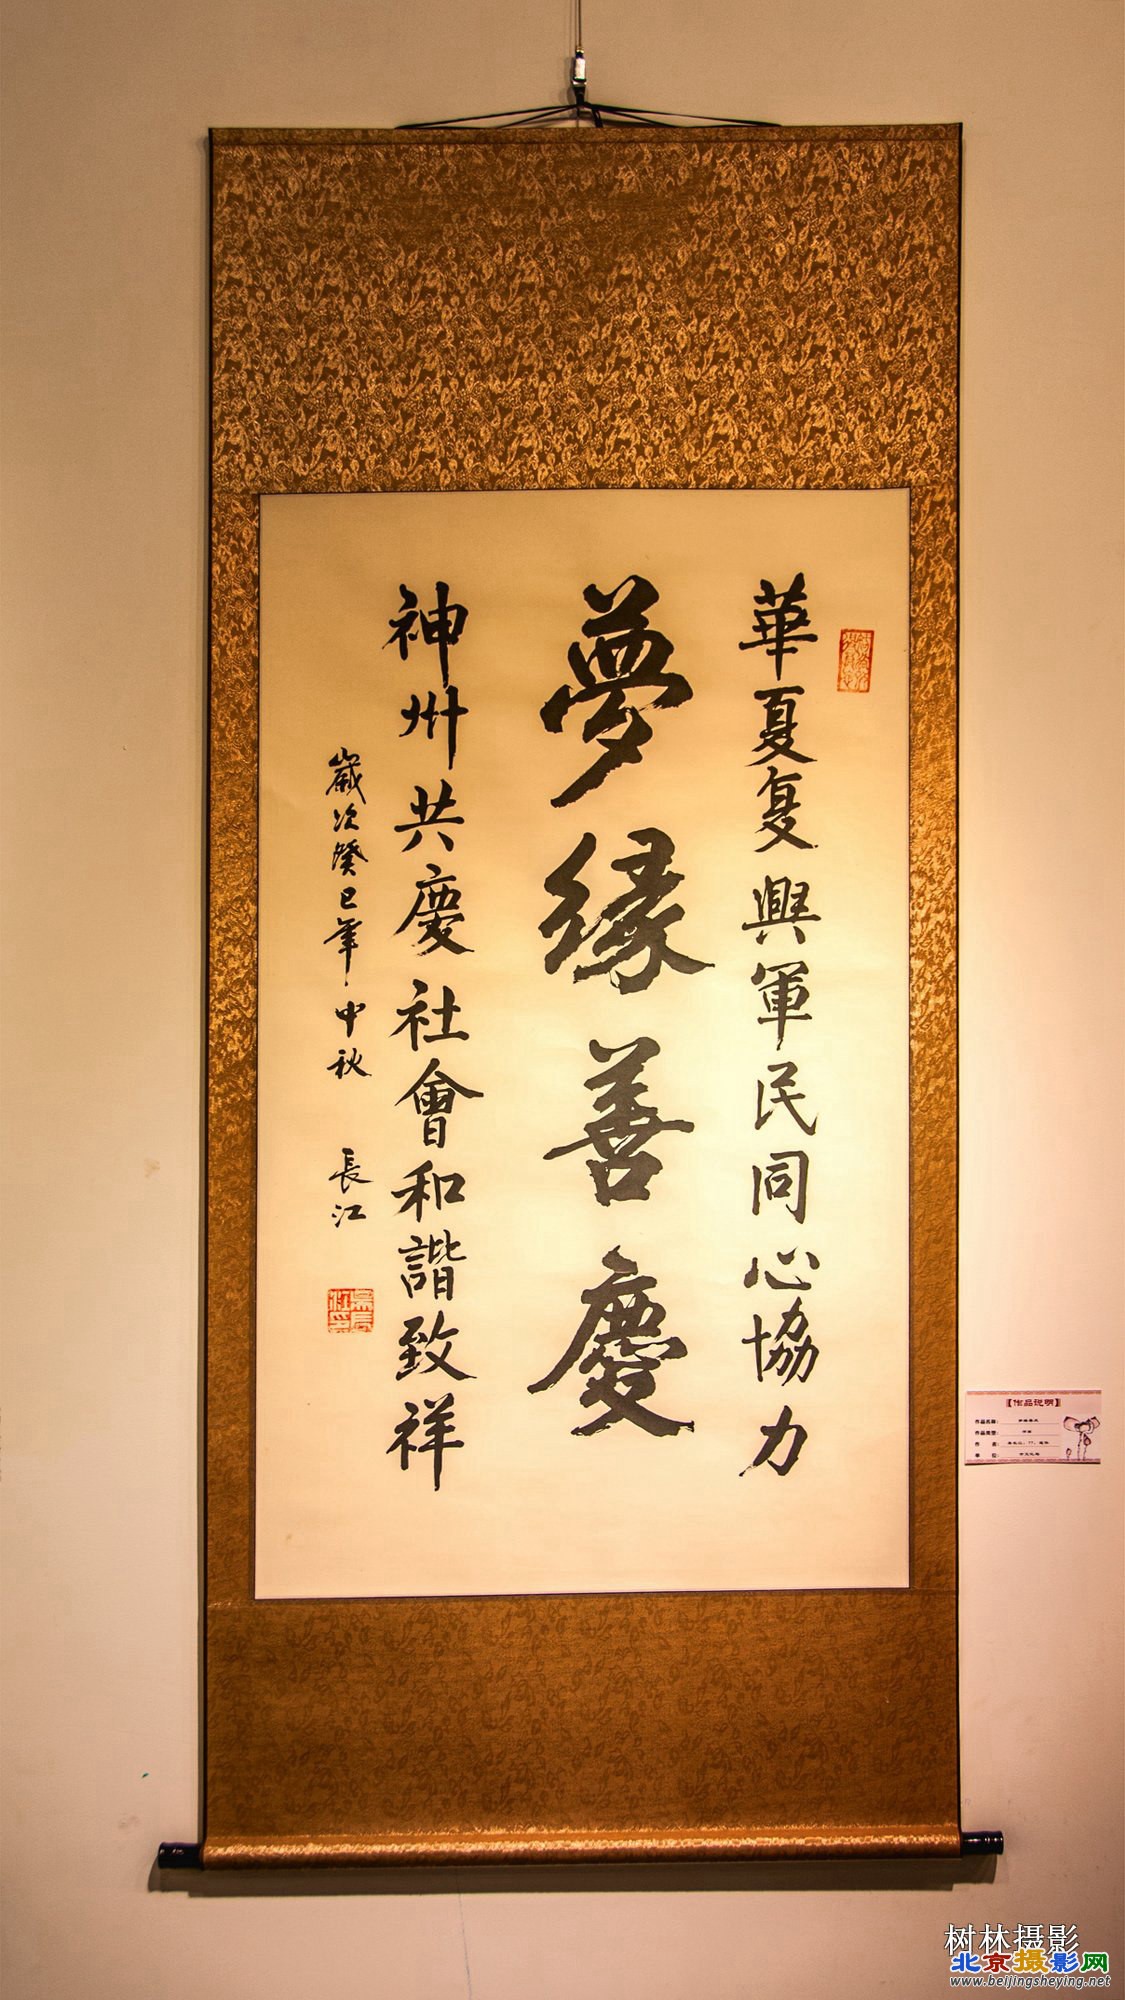 華夏复興軍民同心協力
夢緣善慶
神州共慶社會和諧致祥
歲次癸巳年中秋
長江
【作品说明】
作品名称：
作品类型：
作 者：
单 位：
树林摄影
北京摄影网
www.beijingsheying.net